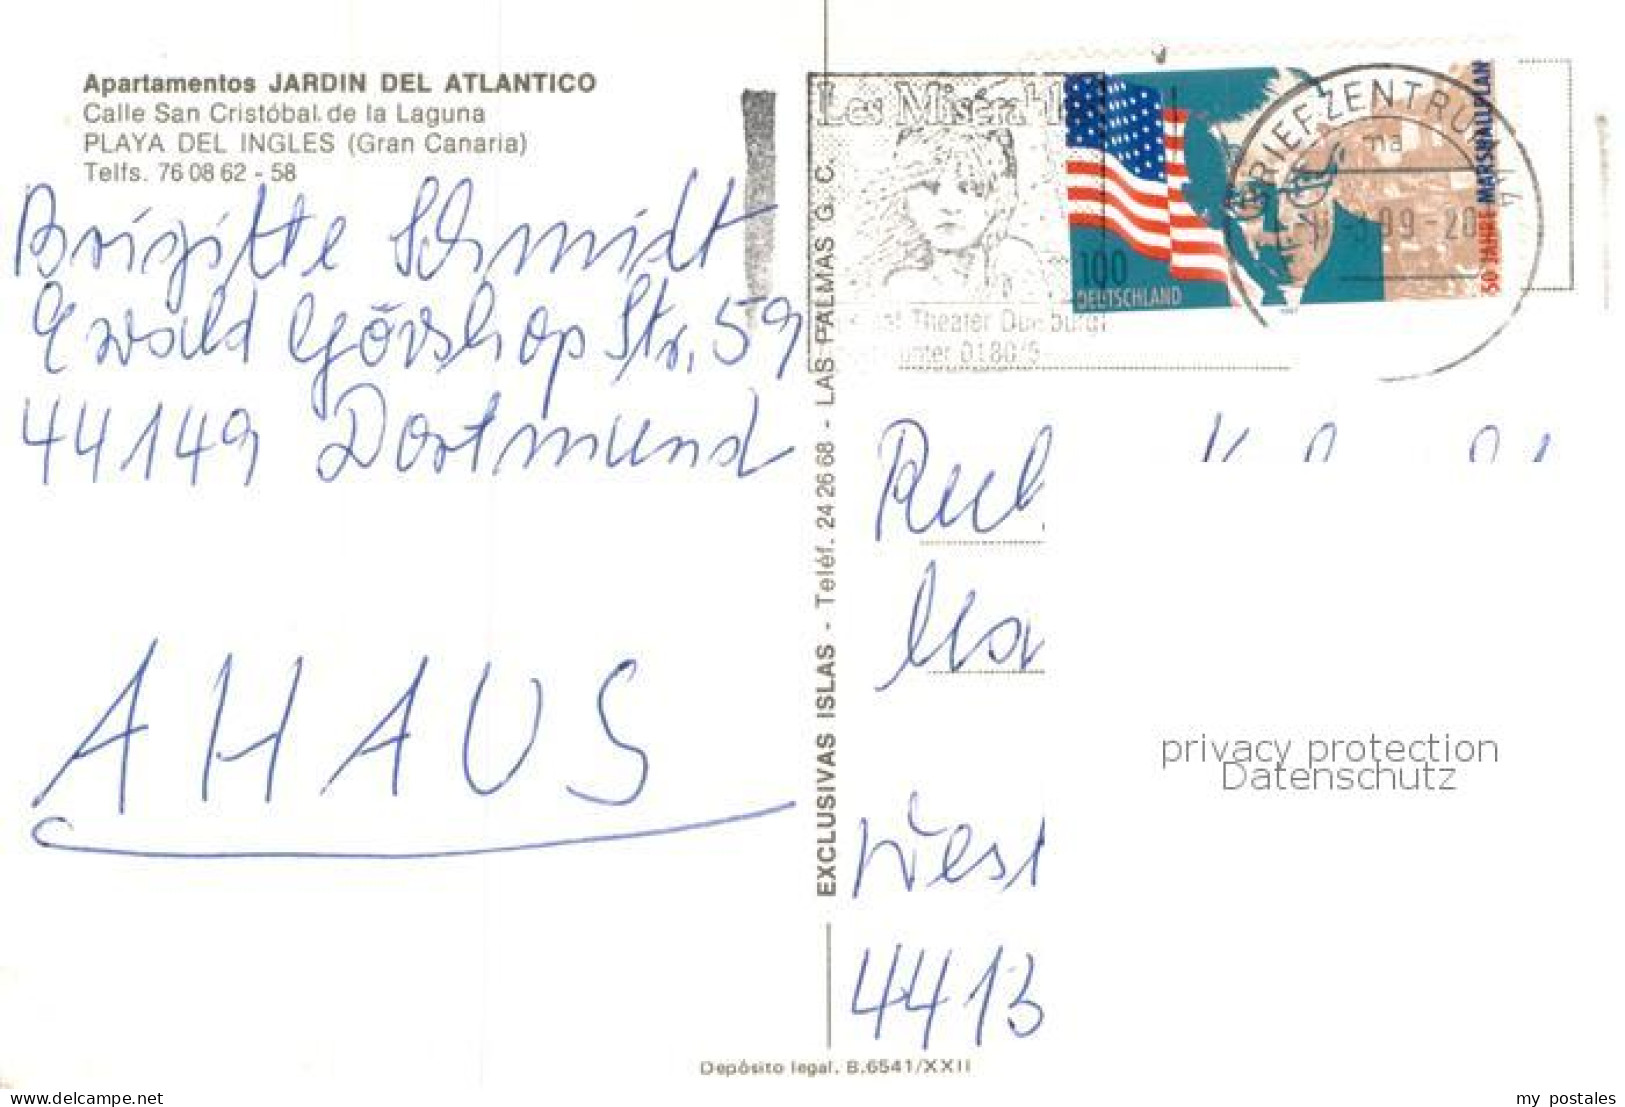 Apartamentos JARDIN DEL ATLANTICO
Calle San Cristóbal de la Laguna
PLAYA DEL INGLES (Gran Canaria)
Telfs. 76 08 62 - 58
Brigitte Schmidt
Ewald Görshop Str. 59
44149 Dortmund
AHAUS
EXCLUSIVAS ISLAS - Teléf. 24 26 68 - LAS PALMAS G. C.
Les Misérabl
Theater Duisburg
unter 0180/5
100
DEUTSCHLAND
50 JAHRE MARSHALLPLAN
BRIEFZENTRUM 44
99-20
West
4413
privacy protection
Datenschutz
Depósito legal. B.6541/XXII
delcampe.net
my postales